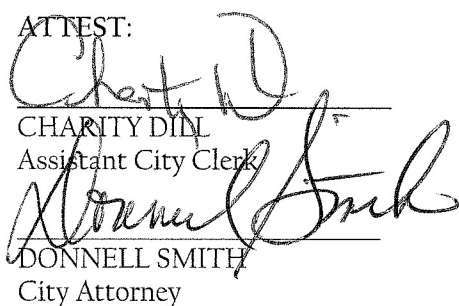 ATTEST:
Charity D.
CHARITY DILL
Assistant City Clerk
Donnell Smith
DONNELL SMITH
City Attorney